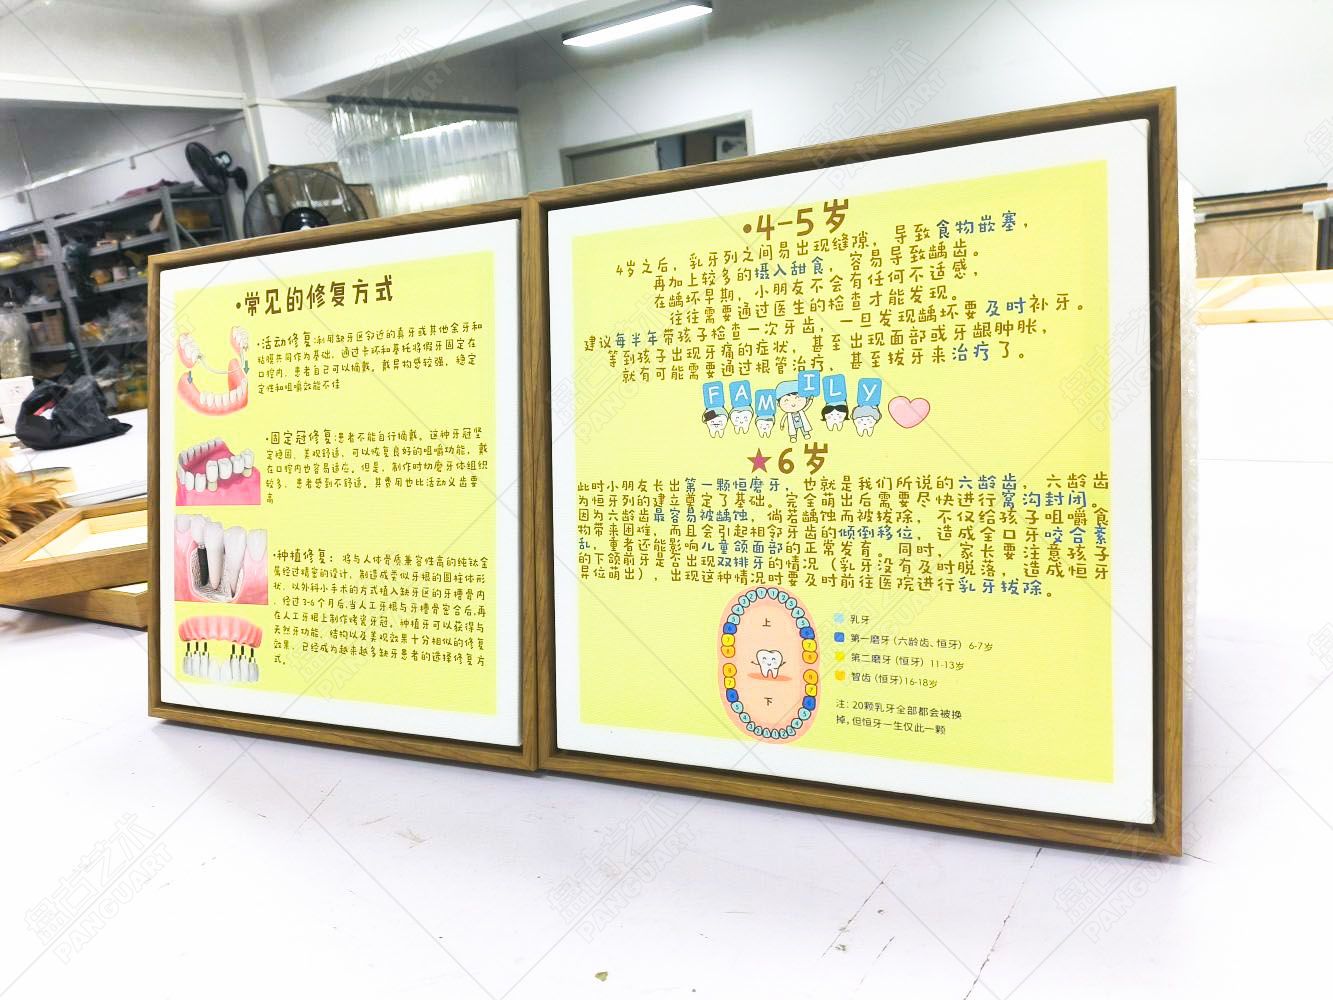 •常见的修复方式
•活动修复:利用缺牙区邻近的真牙或其他余牙和
粘膜共同作为基础，通过卡环和基托将假牙固定在
口腔内，患者自己可以摘戴。戴异物感较强，稳定
定性和咀嚼效能不佳
•固定冠修复:患者不能自行摘戴。这种牙冠坚
定稳固，美观舒适，可以恢复良好的咀嚼功能，戴
在口腔内也容易适应。但是，制作时切磨牙体组织
较多，患者感到不舒适，其费用也比活动义齿要
高
•种植修复：将与人体骨质兼容性高的纯钛金
属经过精密的设计，制造成类似牙根的圆柱体形
状，以外科小手术的方式植入缺牙区的牙槽骨内
，经过3-6个月后,当人工牙根与牙槽骨密合后,再
在人工牙根上制作烤瓷牙冠。种植牙可以获得与
天然牙功能、结构以及美观效果十分相似的修复
效果，已经成为越来越多缺牙患者的选择修复方
式。
•4-5岁
4岁之后，乳牙列之间易出现缝隙，导致食物嵌塞，
再加上较多的摄入甜食，容易导致龋齿。
在龋坏早期，小朋友不会有任何不适感，
往往需要通过医生的检查才能发现。
建议每半年带孩子检查一次牙齿，一旦发现龋坏要及时补牙。
等到孩子出现牙痛的症状，甚至出现面部或牙龈肿胀，
就有可能需要通过根管治疗，甚至拔牙来治疗了。
FAMILY
★6岁
此时小朋友长出第一颗恒磨牙，也就是我们所说的六龄齿，六龄齿
为恒牙列的建立奠定了基础。完全萌出后需要尽快进行窝沟封闭。
因为六龄齿最容易被龋蚀，倘若龋蚀而被拔除，不仅给孩子咀嚼食
物带来困难，而且会引起相邻牙齿的倾倒移位，造成全口牙咬合紊
乱，重者还能影响儿童颌面部的正常发育。同时，家长要注意孩子
的下颌前牙是否出现双排牙的情况（乳牙没有及时脱落，造成恒牙
异位萌出），出现这种情况时要及时前往医院进行乳牙拔除。
上
下
乳牙
第一磨牙 (六龄齿、恒牙) 6-7岁
第二磨牙 (恒牙) 11-13岁
智齿 (恒牙)16-18岁
注：20颗乳牙全部都会被换
掉，但恒牙一生仅此一颗
盘古艺术
PANGUART